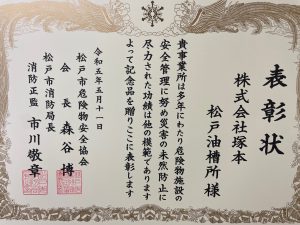 表彰状
株式会社塚本
松戸油槽所様
貴事業所は多年にわたり危険物施設の
安全管理に努め災害の未然防止に
尽力された功績は他の模範であります
よって記念品を贈りここに表彰します
令和五年五月十一日
松戸市危険物安全協会
会長 森谷博
松戸市消防局長
消防正監 市川敬章